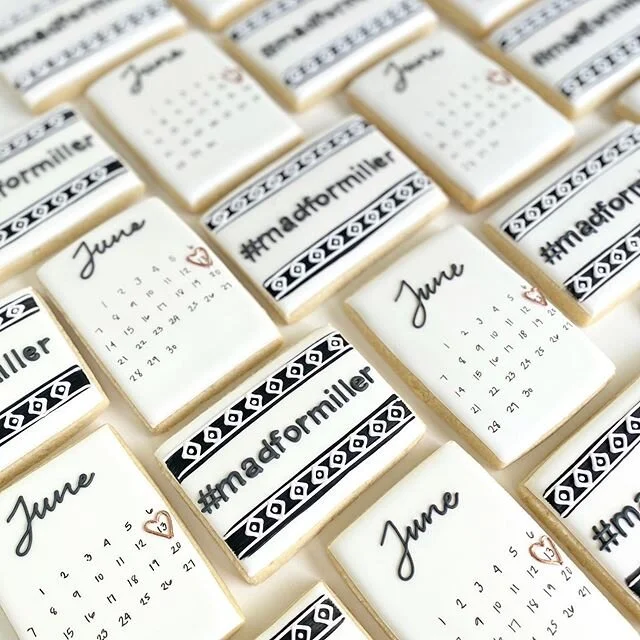 #madformiller
#madformiller
#madformiller
June
June
formiller
#madformiller
#madform
June
1 2 3 4 5
7 8 9 10 11 12 13
14 15 16 17 18 19 20
21 22 23 24 25 26 27
28 29 30
June
1 2 3 4 5 6
7 8 9 10 11 12 13
14 15 16 17 18 19 20
21 22 23 24 25 26
28 29 30
iller
#madformiller
#m
June
1 2 3 4 5 6
7 8 9 10 11 12 13
14 15 16 17 18 19 20
23 24 25 26 27
June
1 2 3 4 5 6
7 8 9 10 11 12 13